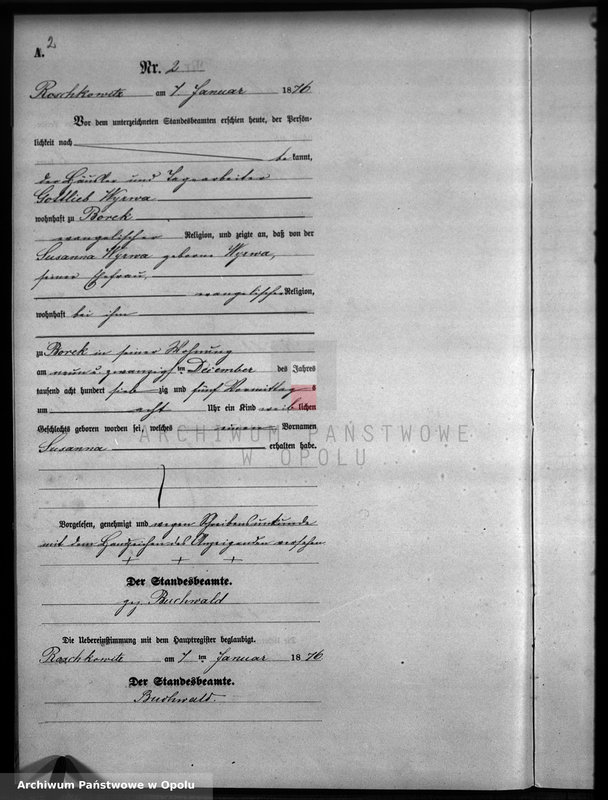 2
A.
Nr. 2
Roschkowitz am 7 Januar 1876
Vor dem unterzeichneten Standesbeamten erschien heute, der Persön-
lichkeit nach
be kannt,
der Häusler und Tagearbeiter
Gottlieb Wyrwa
wohnhaft zu Borek
evangelischer Religion, und zeigte an, daß von der
Susanna Wyrwa geborne Wyrwa,
seiner Ehefrau,
evangelischer Religion,
wohnhaft bei ihm
zu Borek in seiner Wohnung
am neun u zwanzigsten December des Jahres
tausend acht hundert sieb zig und fünf Vormittag s
um acht Uhr ein Kind weib lichen
Geschlechts geboren worden sei, welches einen Vornamen
Susanna erhalten habe.
Vorgelesen, genehmigt und wegen Schreibensunkunde
mit dem Handzeichen des Anzeigenden versehen
+ + +
Der Standesbeamte.
gez. Buchwald
Die Uebereinstimmung mit dem Hauptregister beglaubigt.
Roschkowitz am 7 ten Januar 1876
Der Standesbeamte.
Buchwald.
ARCHIWUM PAŃSTWOWE
W OPOLU
Archiwum Państwowe w Opolu